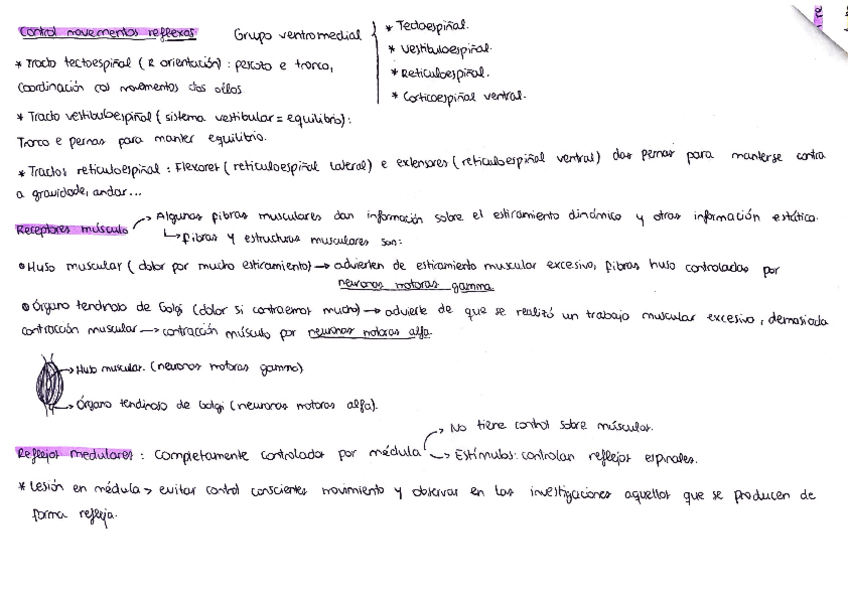 Control movementos reflexos Grupo ventromedial
* Tectoespiñal.
* Vestibuloespiñal.
* Reticuloespiñal.
* Corticoespiñal ventral.
* Tracto tectoespiñal (R orientación): pescozo e tronco,
Coordinación cos movementos dos ollos
* Tracto vestibuloespiñal (sistema vestibular = equilibrio):
Tronco e pernas para manter equilibrio.
* Tractos reticuloespiñal: Flexores (reticuloespiñal lateral) e extensores (reticuloespiñal ventral) das pernas para manterse contra
a gravidade, andar...
Receptores músculo → Algunas fibras musculares dan información sobre el estiramiento dinámico y otras información estática.
↳ Fibras y estructuras musculares son:
• Huso muscular (dolor por mucho estiramiento) → advierten de estiramiento muscular excesivo, fibras huso controladas por
neuronas motoras gamma.
• Órgano tendinoso de Golgi (dolor si contraemos mucho) → advierte de que se realizó un trabajo muscular excesivo, demasiada
contracción muscular → contracción músculo por neuronas motoras alfa.
→ Huso muscular. (neuronas motoras gamma)
→ Órgano tendinoso de Golgi (neuronas motoras alfa).
→ No tiene control sobre músculos.
Reflejos medulares: Completamente controlados por médula
→ Estímulos: controlan reflejos espinales.
* Lesión en médula > evitar control consciente movimiento y observar en las investigaciones aquellos que se producen de
forma refleja.